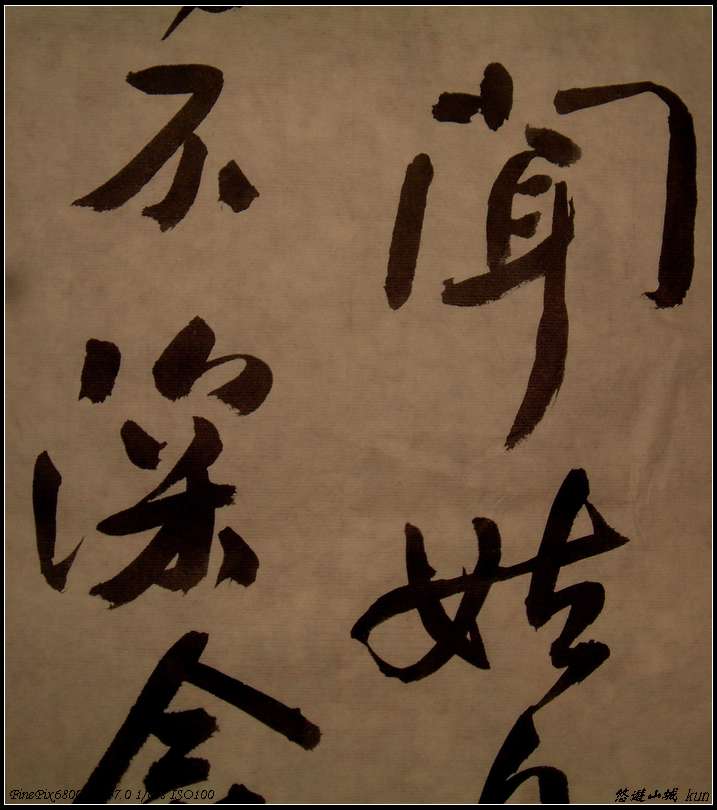 闻姑
不深
FinePix6800 ISO100
悠遊山城 kun